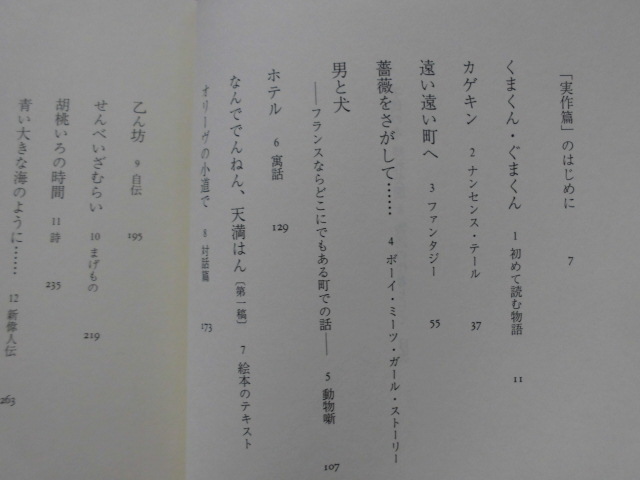 「実作篇」のはじめに 7
くまくん・ぐまくん 1 初めて読む物語 11
カゲキン 2 ナンセンス・テール 37
遠い遠い町へ 3 ファンタジー 55
薔薇をさがして…… 4 ボーイ・ミーツ・ガール・ストーリー
男と犬
――フランスならどこにでもある町での話―― 5 動物噺 107
ホテル 6 寓話 129
なんででんねん、天満はん〔第一稿〕 7 絵本のテキスト
オリーヴの小道で 8 対話篇 173
乙ん坊 9 自伝 195
せんべいざむらい 10 まげもの 219
胡桃いろの時間 11 詩 235
青い大きな海のように…… 12 新偉人伝 263